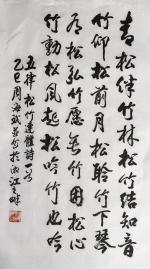 青松伴竹林松竹结知音
竹仰松前月松聆竹下琴
松弘竹愿無竹困松心
竹動松風起松吟竹也吟
五律松竹連體詩一首
乙巳周海斌於江之畔